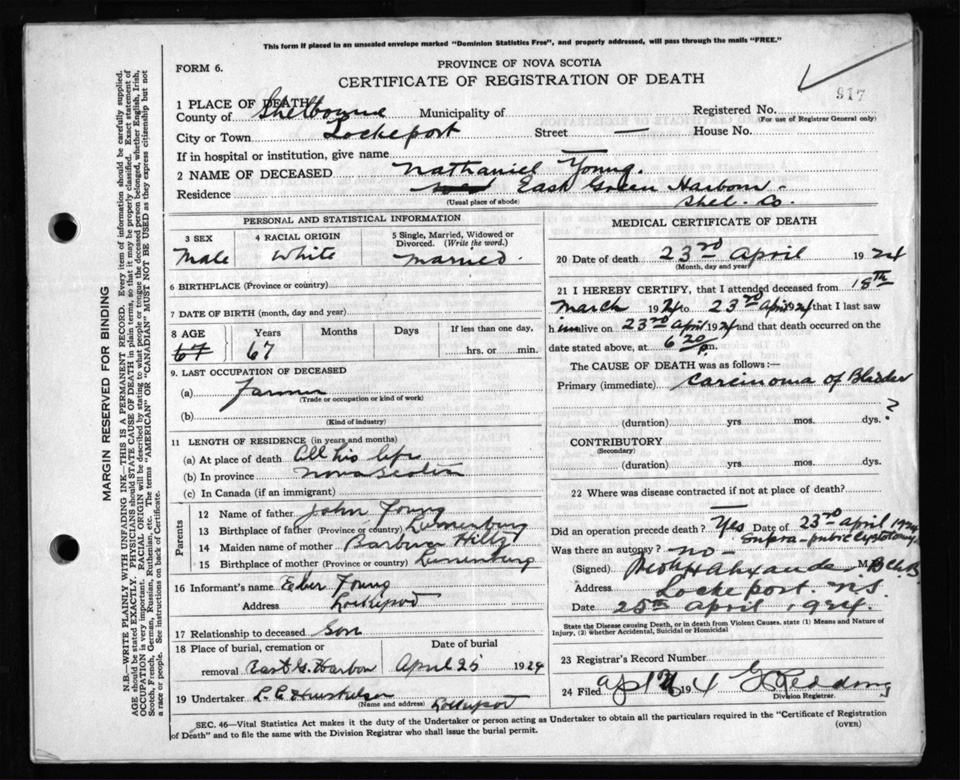 This form if placed in an unsealed envelope marked "Dominion Statistics Free", and properly addressed, will pass through the mails "FREE."
PROVINCE OF NOVA SCOTIA
FORM 6.
CERTIFICATE OF REGISTRATION OF DEATH
917
1 PLACE OF DEATH
County of Shelbourne Municipality of
Registered No.
(For use of Registrar General only)
City or Town Lockeport Street — House No.
If in hospital or institution, give name —
2 NAME OF DECEASED Nathaniel Young.
Residence East Green Harbour -
(Usual place of abode) Shel. Co.
PERSONAL AND STATISTICAL INFORMATION
3 SEX Male
4 RACIAL ORIGIN White
5 Single, Married, Widowed or Divorced. (Write the word.) Married.
6 BIRTHPLACE (Province or country)
7 DATE OF BIRTH (month, day and year)
8 AGE Years Months Days If less than one day,
67 67 hrs. or min.
9. LAST OCCUPATION OF DECEASED
(a) Farmer
(Trade or occupation or kind of work)
(b)
(Kind of industry)
11 LENGTH OF RESIDENCE (in years and months)
(a) At place of death All his life
(b) In province Nova Scotia
(c) In Canada (if an immigrant)
Parents
12 Name of father John Young
13 Birthplace of father (Province or country) Lunenburg
14 Maiden name of mother Barbara Hiltz
15 Birthplace of mother (Province or country) Lunenburg
16 Informant's name Eber Young
Address Lockeport
17 Relationship to deceased Son
18 Place of burial, cremation or removal East G. Harbour
Date of burial April 25 1924
19 Undertaker
(Name and address) Lockeport
MEDICAL CERTIFICATE OF DEATH
20 Date of death 23rd April 1924
(Month, day and year)
21 I HEREBY CERTIFY, that I attended deceased from 18th
March 1924 to 23rd April 1924 that I last saw
him alive on 23rd April 1924 and that death occurred on the
date stated above, at 6 20 p.m.
The CAUSE OF DEATH was as follows:—
Primary (immediate) Carcinoma of Bladder
(duration) yrs mos. dys. ?
CONTRIBUTORY
(Secondary)
(duration) yrs. mos. dys.
22 Where was disease contracted if not at place of death?
—
Did an operation precede death? Yes Date of 23rd April 1924
Supra-pubic Cystotomy
Was there an autopsy? - no -
(Signed) M.B Ch.B
Address Lockeport. N.S.
Date 25th April 1924.
State the Disease causing Death, or in death from Violent Causes, state (1) Means and Nature of Injury, (2) whether Accidental, Suicidal or Homicidal
23 Registrar's Record Number
24 Filed
Division Registrar.
SEC. 46—Vital Statistics Act makes it the duty of the Undertaker or person acting as Undertaker to obtain all the particulars required in the "Certificate of Registration
of Death" and to file the same with the Division Registrar who shall issue the burial permit.
(OVER)
MARGIN RESERVED FOR BINDING
N.B.—WRITE PLAINLY WITH UNFADING INK—THIS IS A PERMANENT RECORD. Every item of information should be carefully supplied.
AGE should be stated EXACTLY. PHYSICIANS should STATE CAUSE OF DEATH in plain terms, so that it may be properly classified. Exact statement of
OCCUPATION is very important. RACIAL ORIGIN will be described by stating to what people or tongue the deceased person belonged, whether English, Irish,
Scotch, French, German, Russian, Ruthenian, etc. The terms "AMERICAN" OR "CANADIAN" MUST NOT BE USED as they express citizenship but not
a race or people. See instructions on back of Certificate.